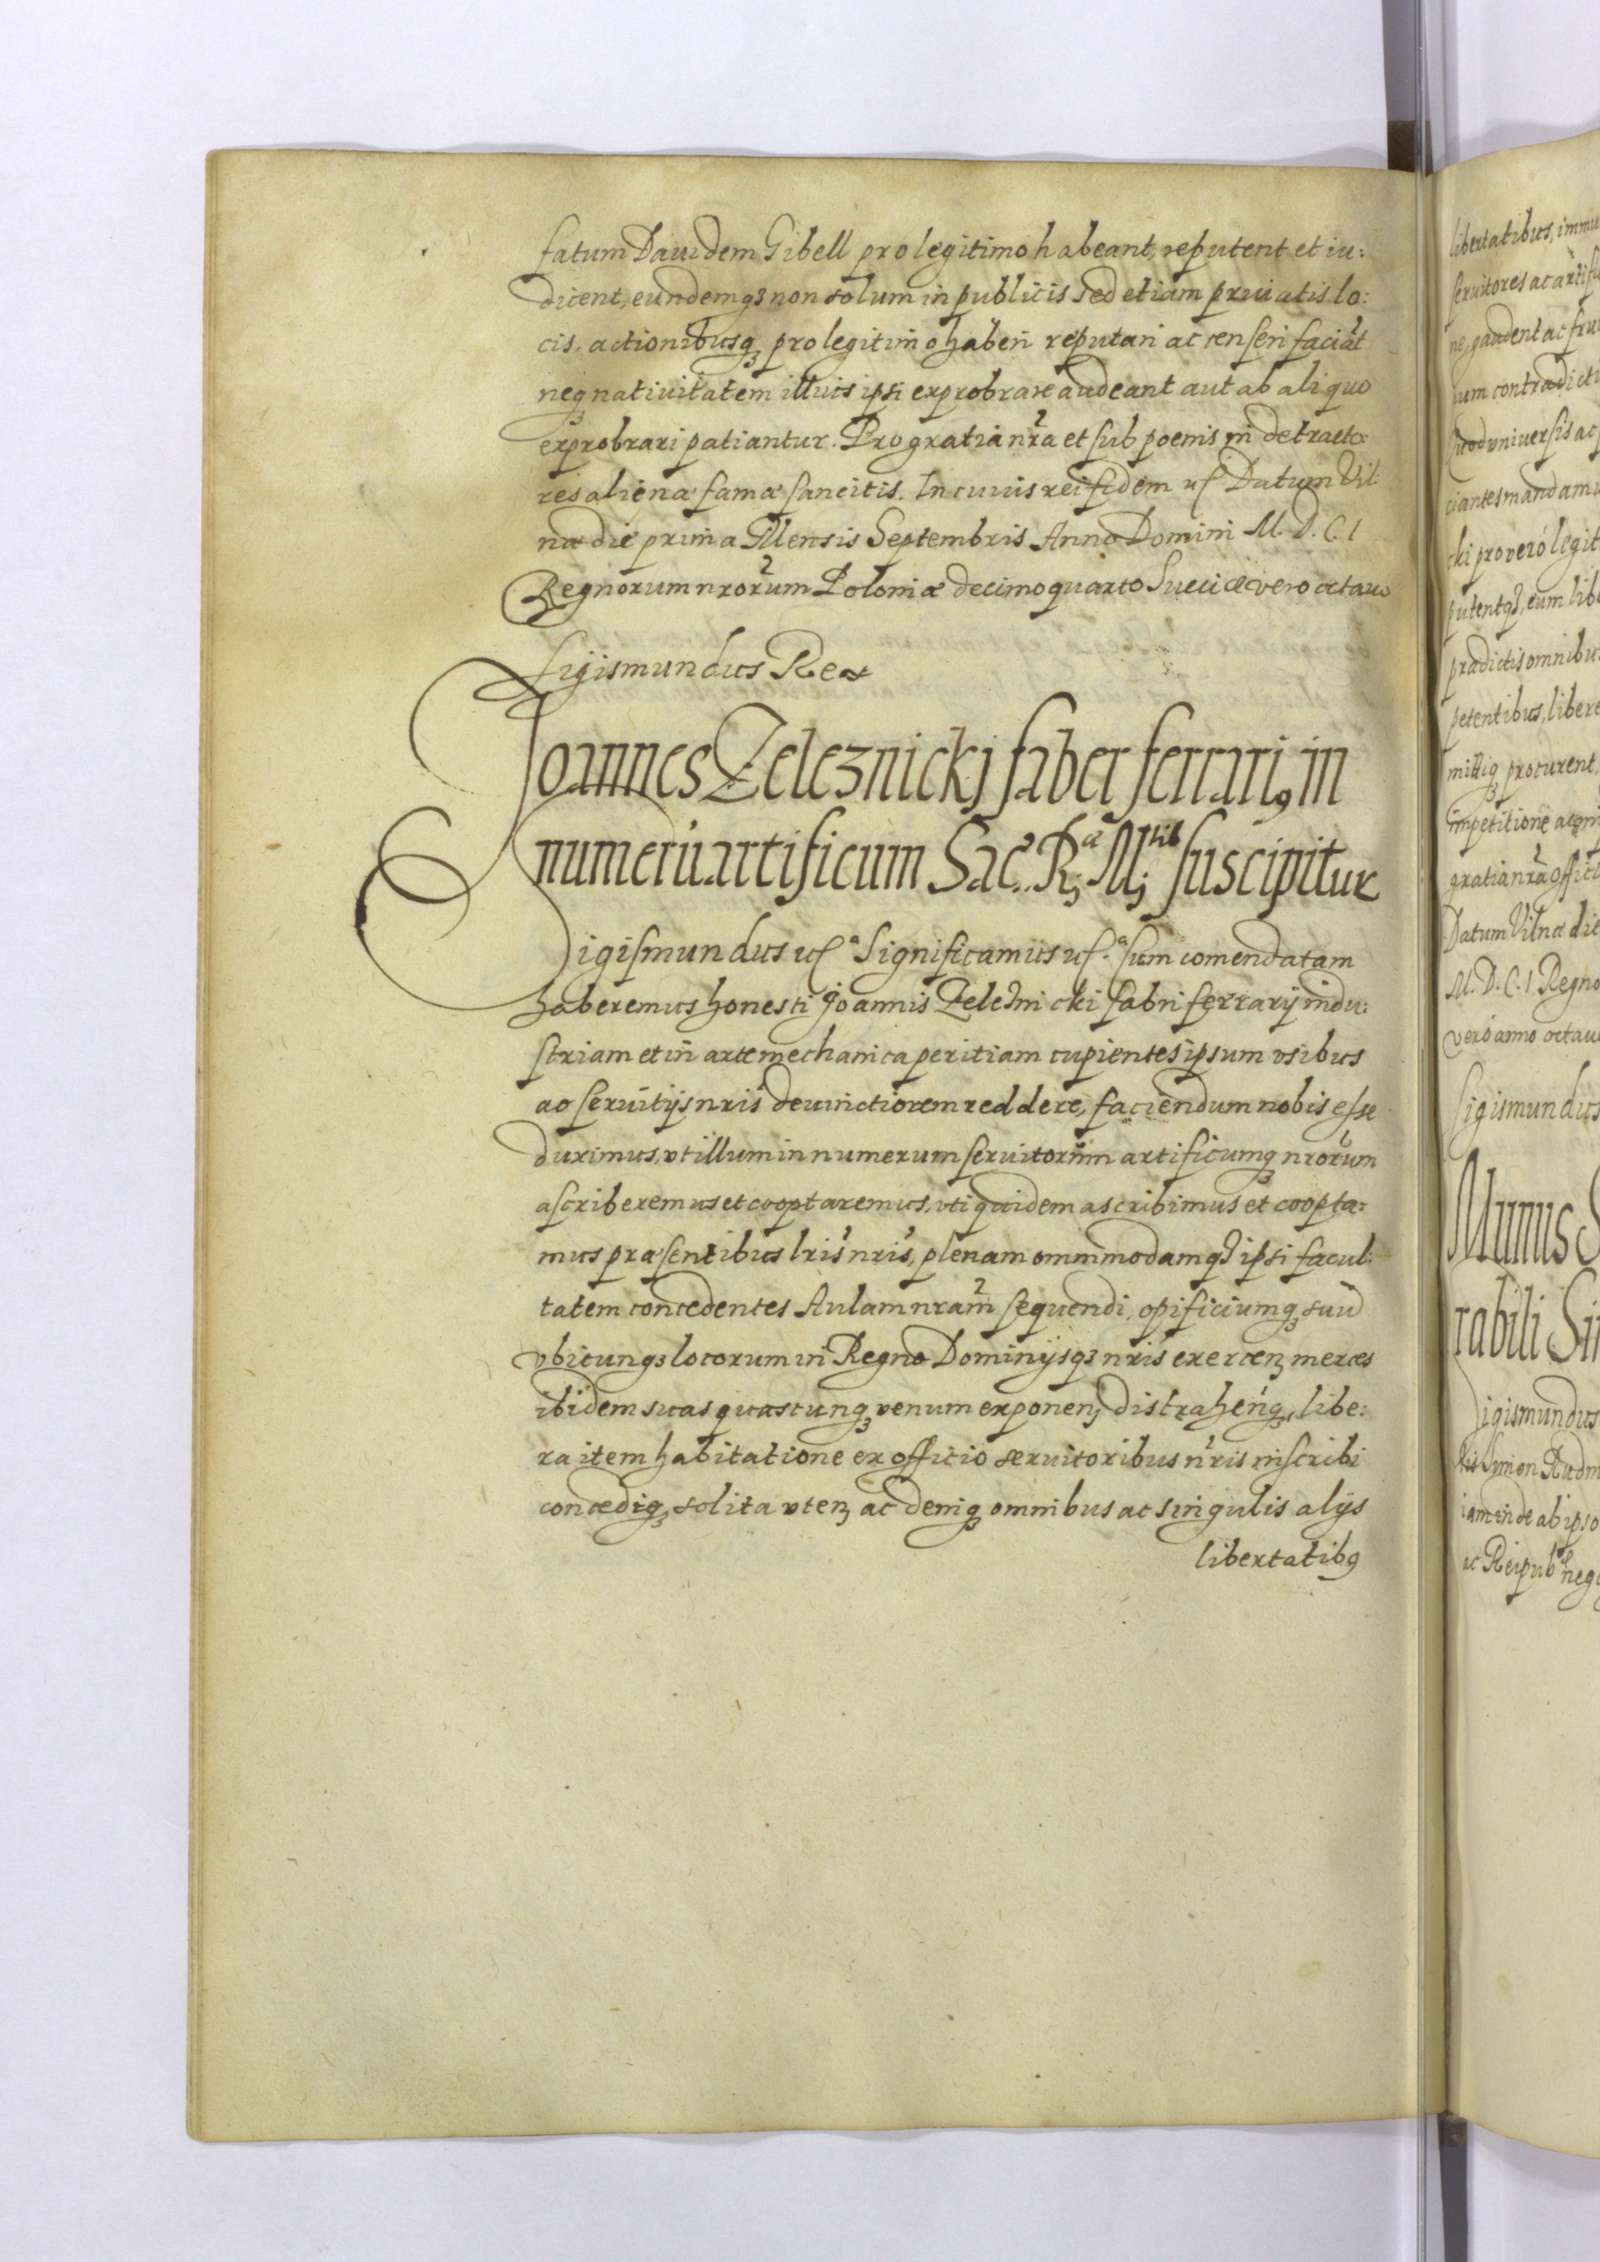 fatum Dauidem Gibell pro legitimo habeant, reputent et iu:
dicent, eundemqȝ non solum in publicis sed etiam priuatis lo:
cis, actionibusqȝ pro legitimo haberi reputari ac censeri faciāt
neqȝ natiuitatem illius ipsi exprobrare audeant aut ab aliquo
exprobrari patiantur. Pro gratia nr̃a et sub poenis in detracto:
res alienæ famæ sancitis. In cuius rei fidem uſ Datum Vil
næ die prima Mensis Septembris Anno Domini M. D. C. I
Regnorum nrorum Poloniæ decimo quarto Sueciæ vero octauo
Sigismundus Rex
Joannes Zeleznickj faber ferrariꝰ in
numerū artificum Sac. R. M. suscipitur
Sigismundus uſ Significamus uſ. Cum comendatam
haberemus honesti Joannis Zelezni cki fabri ferrarij indu:
striam et in arte mechanica peritiam cupientes ipsum vsibus
ac seruitijs nris deuinctiorem reddere, faciendum nobis esse
duximus, vt illum in numerum seruitorum artificumqȝ nrorum
ascriberemus et cooptaremus, vti quidem ascribimus et coopta:
mus præsentibus lris nris, plenam omnimodamqȝ ipsi facul:
tatem concedentes Aulam nram sequendi, opificiumqȝ suū
vbicunqȝ locorum in Regno Dominijsqȝ nris exercenȝ merces
ibidem suas quascunqȝ venum exponenȝ distrahenqȝ, libe:
ra item habitatione ex officio seruitoribus nris inscribi
concediqȝ solita vtenȝ ac deniqȝ omnibus ac singulis alijs
libertatibꝰ
libertatibus, immu
seruitores ac artifi
ne, gaudent ac fru
num contradicti
Quod vniuersis ac
ciantes mandamu
cki pro vero legit
putentqȝ, eum lib
prædictis omnibus
petentibus, libere
mittiqȝ procurent,
impetitione ac
gratia nrã offici
Datum Vilnæ die
M. D. C. I Regno
vero anno octauo
Sigismundus
Munus S
rabili Si
Sigismundus
Simon Rudn
iam inde ab ipso
ac Reipub neg